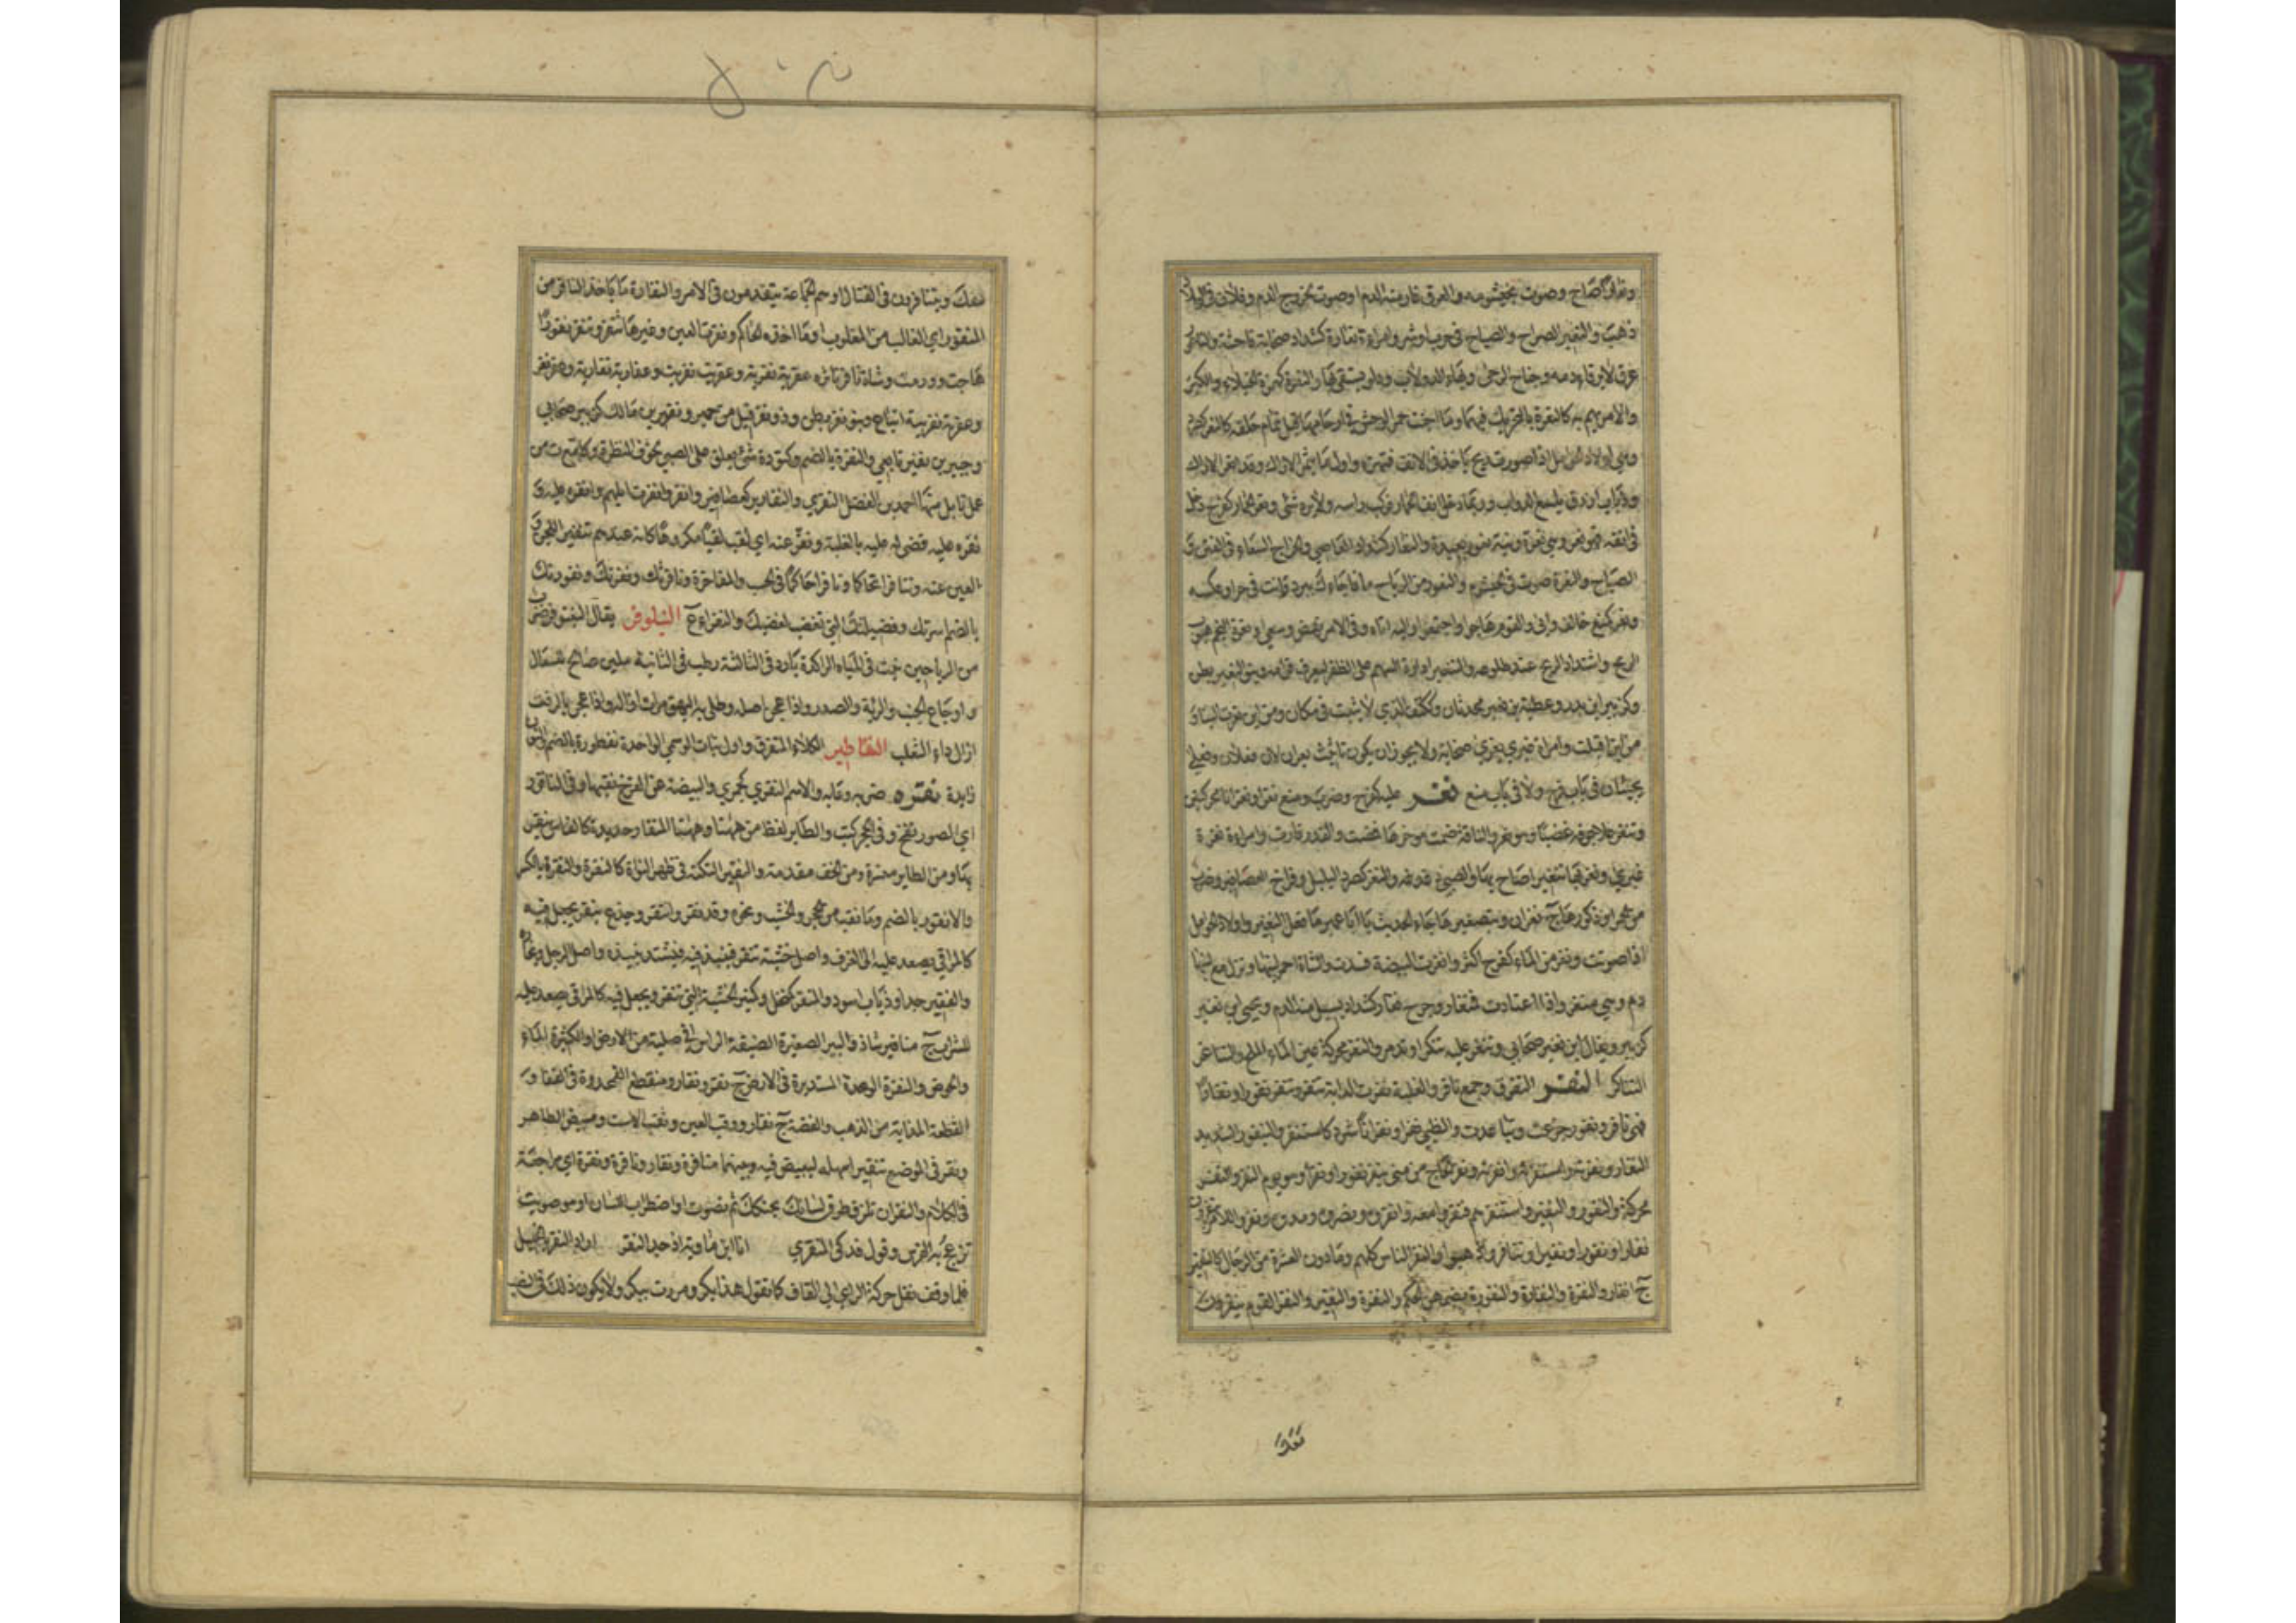 صاح وصوت بخيشومه والعرق فار منه الدم او صوت لخروج الدم وفلان في البلاد
ذهب والنعير الصراخ والصياح في حرب او شر وامراة نعارة كشداد صخابة فاحشة والناعر
عرق لا يرقا دمه وجناح الرحى والناعور الدولاب ودلو يستقى بها والنعرة كهمزة الخيلاء والكبر
والامر يهم به كالنعرة بالتحريك فيهما وما اجنت حمر الوحش في ارحامها قبل تمام خلقه كالنعر
اولاد الحوامل اذا صورت وريح تاخذ في الانف فتهزه واول ما يثمر الاراك وقد انعر الاراك
وذباب ازرق يلسع الدواب وربما دخل انف الحمار فيركب راسه ولا يرده شي ونعر الحمار كفرح دخل
في انفه فهو نعر وهي نعرة ونية نعور بعيدة والنعار كشداد العاصي والخراج السعاء في الفتن و
الصياح والنعرة صوت في الخيشوم والنعور من الرياح ما فاجاك ببرد وانت في حر او عكسه
ونعر كمنع خالف وابى والقوم هاجوا واجتمعوا واليه اتاه وفي الامر نهض وسعى ونعرة النجم هبوب
الريح واشتداد الحر عند طلوعه والتنعير ادارة السهم على الظفر ليعرف قوامه وبنو النعير بطن
وكزبير ابن بدر وعطية بن نعير محدثان وككتف الذي لا يثبت في مكان ومن اين نعرت الينا
من اين اقبلت وامراة غيرى نغرى صخابة ولا يجوز ان يكون تانيث نعران لان فعلان وفعلى
يجيئان في باب فرح ولا في باب منع نغر عليه كفرح وضرب ومنع نغرا ونغرانا محركتين
وتنغر غلا جوفه غضبا وهو نغر والناقة ضمت موخرها فمضت والقدر فارت وامراة نغرة
غيرى ونغر بها تنغيرا صاح بها والصبي دغدغه والنغر كصرد البلبل وفراخ العصافير وضرب
من الحمر او ذكورها ج نغران وبتصغيرها جاء الحديث يا ابا عمير ما فعل النغير واولاد الحوامل
اذا صوتت ونغر من الماء كفرح اكثر وانغرت البيضة فسدت والشاة احمر لبنها ونزل مع لبنها
دم وهي منغر واذا اعتادت فمنغار وجرح نغار كشداد يسيل منه الدم ويحيى بن نغير
كزبير ويقال ابن نغير صحابي وتنغر عليه تنكر او تذمر والنغر محركة عين الماء الملح والتناغر
التناكر النفر التفرق وجمع نافر والغلبة نفرت الدابة تنفر وتنفر نفورا ونفارا
فهي نافر ونفور جزعت وتباعدت والظبي نفرا ونفرانا شرد كاستنفر والينفور الشديد
النفار ونفرته واستنفرته وانفرته ونفر الحاج من منى ينفر نفرا ونفورا وهو يوم النفر والنفر
محركة والنفور والنفير واستنفرهم فنفروا معه وانفروه نصروه ومدوه ونفروا للامر
نفارا ونفورا ونفيرا وتنافروا ذهبوا والنفر الناس كلهم وما دون العشرة من الرجال كالنفير
ج انفار والنفرة والنفارة والنفورة بضمهن الحكم والنفرة والنفير والنفر القوم ينفرون
معك
معك ويتنافرون في القتال او هم الجماعة يتقدمون في الامر والنفارة ما ياخذ النافر من
المنفور اي الغالب من المغلوب او ما اخذه الحاكم ونفرت العين وغيرها تنفر وتنفر نفورا
هاجت وورمت وشاة نافر ناثر وعفرية نفرية وعفريت نفريت وعفارية نفارية وعفر نفر
وعفريتة نفريتة اتباع وبنو نفر بطن وذو نفر قيل من حمير ونفير بن مالك كزبير صحابي
وجبير بن نفير تابعي والنفرة بالضم وكتؤدة شي يعلق على الصبي لخوف النظرة وكامع ة من
عمل بابل منها احمد بن الفضل النفري والنفارير كعصافير وانفروا نفرت ابلهم وانفره عليه و
نفره عليه قضى له عليه بالغلبة ونفر عنه اي لقب لقبا مكروها كانه عندهم تنفير للجن و
العين عنه وتنافرا تحاكما ونافرا حاكما في الحسب والمفاخرة ونافرتك ونفرتك ونفورتك
بالضم اسرتك وفصيلتك التي تغضب لغضبك والنفراء ع النيلوفر يقال النينوفر ضرب
من الرياحين ينبت في المياه الراكدة بارد في الثالثة رطب في الثانية ملين صالح للسعال
واوجاع الجنب والرئة والصدر واذا عجن اصله وطلي به البهق مرات ازاله واذا عجن بالزفت
ازال داء الثعلب النفاطير الكلاء المتفرق واول نبات الوسمي الواحدة نفطورة بالضم
زايدة نقره ضربه وعابه والاسم النقرى كجمزى والبيضة عن الفرخ نقبها وفي الناقور
اي الصور نفخ وفي الحجر كتب والطاير لقط من ههنا وههنا والمنقار حديدة كالفاس ينقر
بها ومن الطاير منسره ومن الخف مقدمه والنقير النكتة في ظهر النواة كالنقرة والنقر بالكسر
والانقور بالضم وما نقب من الحجر والخشب ونحوه وقد نقر وانتقر وجذع ينقر يجعل فيه
كالمراقي يصعد عليه الى الغرف واصل خشبة تنقر فينبذ فيه فيشتد نبيذه واصل الرجل
والفقير جدا وذباب اسود والمنقر كمنخل وكمنبر الخشبة التي تنقر ويجعل فيه كالمراقي يصعد عليه
للشراب ج مناقير شاذ والبير الصغيرة الضيقة الراس في صلبة من الارض او الكثيرة الماء
والحوض والنقرة الوهدة المستديرة في الارض ج نقر ونقار ومنقطع القمحدوة في القفا و
القطعة المذابة من الذهب والفضة ج نقار ووقب العين وثقب الاست ومبيض الطاير
ونقر في الموضع تنقيرا سهله ليبيض فيه وبينهما مناقرة ونقار وناقرة ونقرة اي مراجعة
في الكلام والنقر ان تلزق طرف لسانك بحنكك ثم تصوت او اضطراب اللسان او هو صويت
تزعج به الفرس وقول فدكي المنقري انا ابن ماوية اذ جد النقر اراد النقر بالخيل
فلما وقف نقل حركة الراء الى القاف كما تقول هذا بكر ومررت ببكر ولا يكون ذلك في النصب